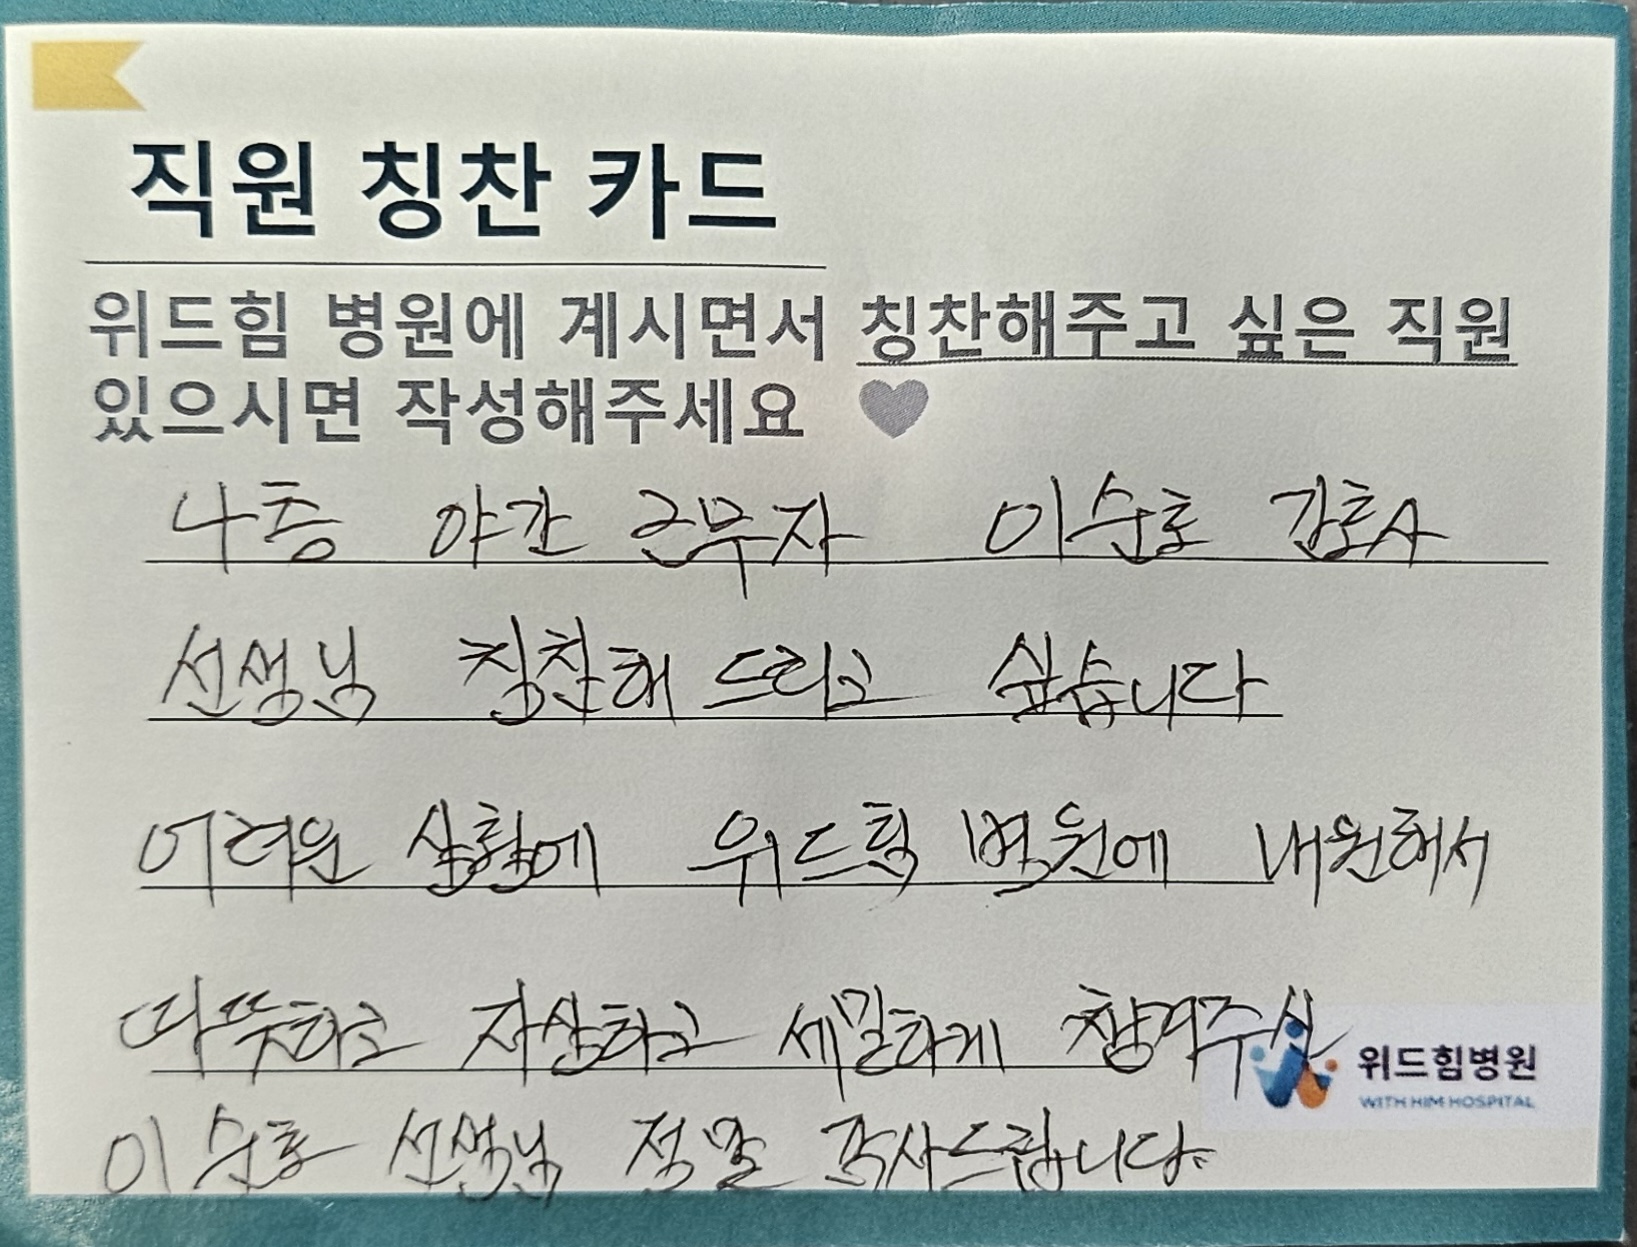 직원 칭찬 카드
위드힘 병원에 계시면서 칭찬해주고 싶은 직원
있으시면 작성해주세요
야간 근무자 이순호 간호사
선생님 칭찬해 드리고 싶습니다
어려운 상황에 위드힘 병원에 내원해서
따뜻하고 자상하고 세밀하게 챙겨주신
위드힘병원
WITH HIM HOSPITAL
이순호 선생님 정말 감사드립니다.